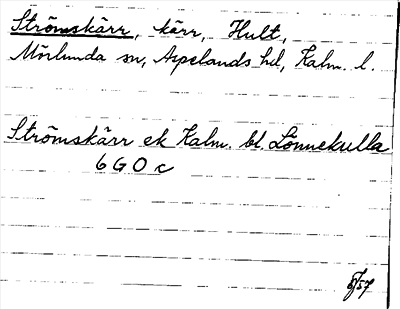 Strömskärr, kärr, Hult,
Mörlunda sn, Aspelands hd, Kalm. l.
Strömskärr ek Kalm. bl. Lönnekulla
6 G 0 c
8/57